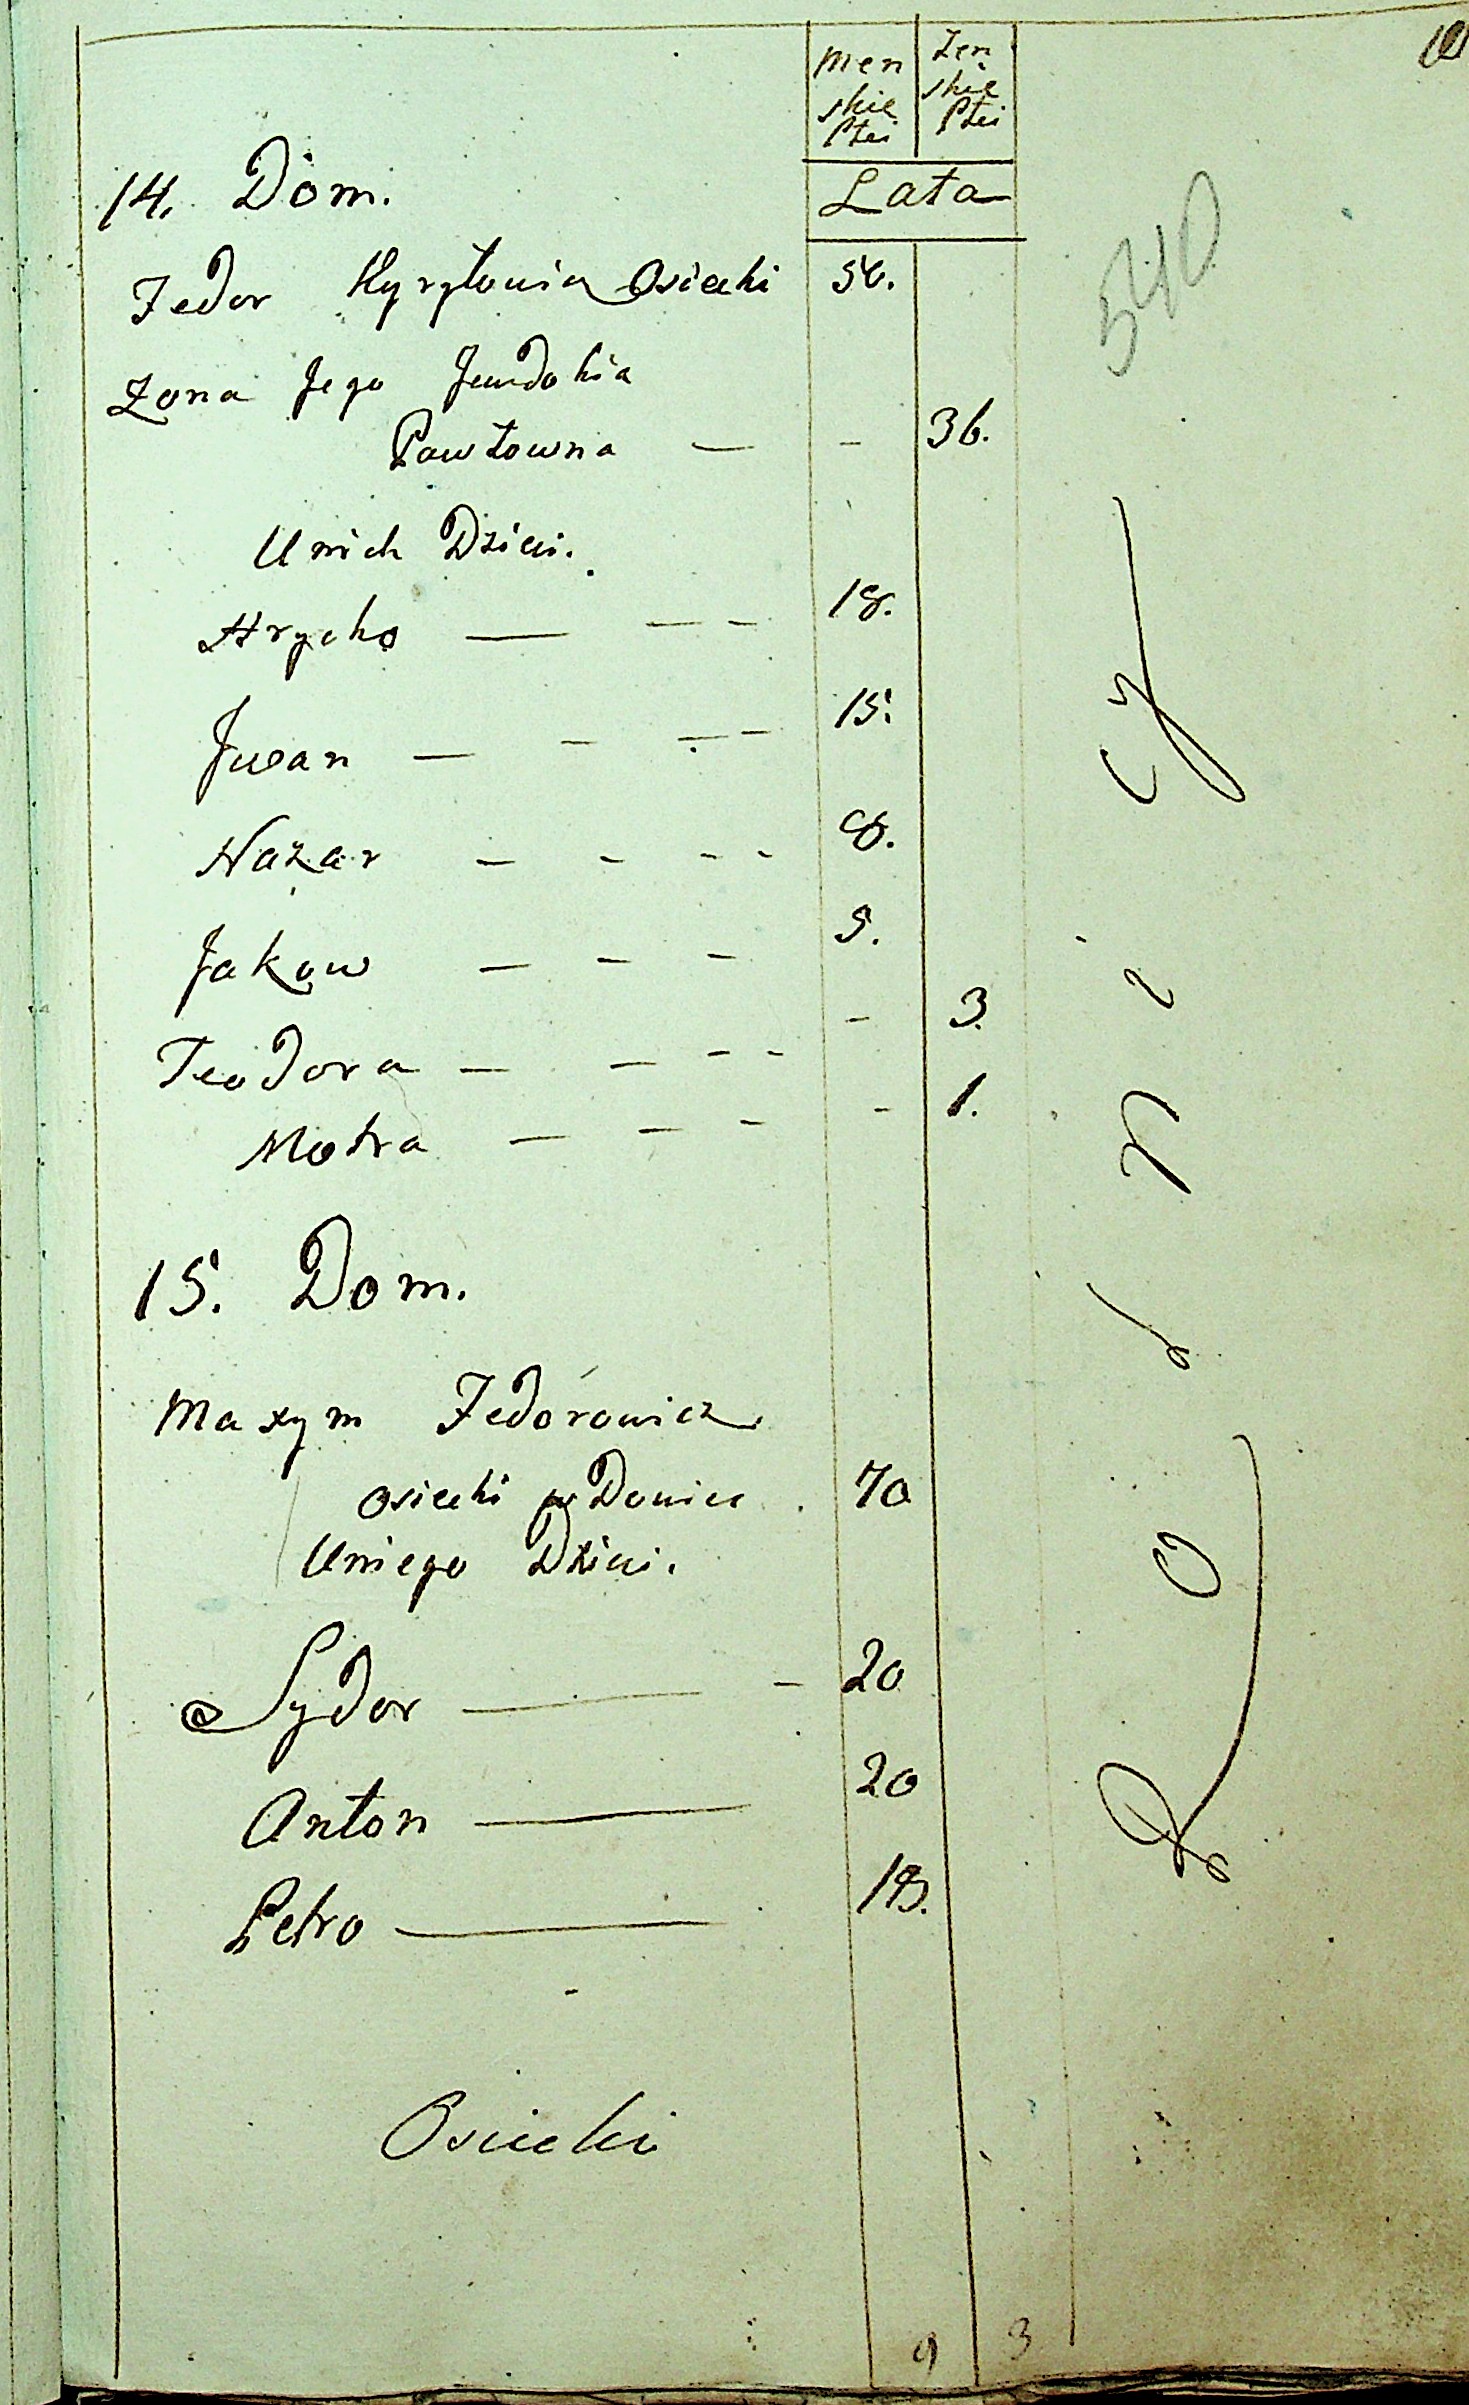 Men
skie
Płci
Żeń
skie
Płci
Lata
14. Dom.
Fedor Kyryłowicz Osiecki 50.
Żona Jego Jewdokia
Pawłowna — - 36.
U nich Dzieci.
Hrycko — — - 18.
Jwan — - — - 15.
Nazar — - - - 8.
Jakow — - - 5.
Teodora — — - - - 3.
Motra — — - - 1.
15. Dom.
Maxym Fedorowicz
Osiecki wdowiec . 70
U niego Dzieci.
Sydor — - 20
Anton — 20
Petro — 18.
Osiecki
9 3
540